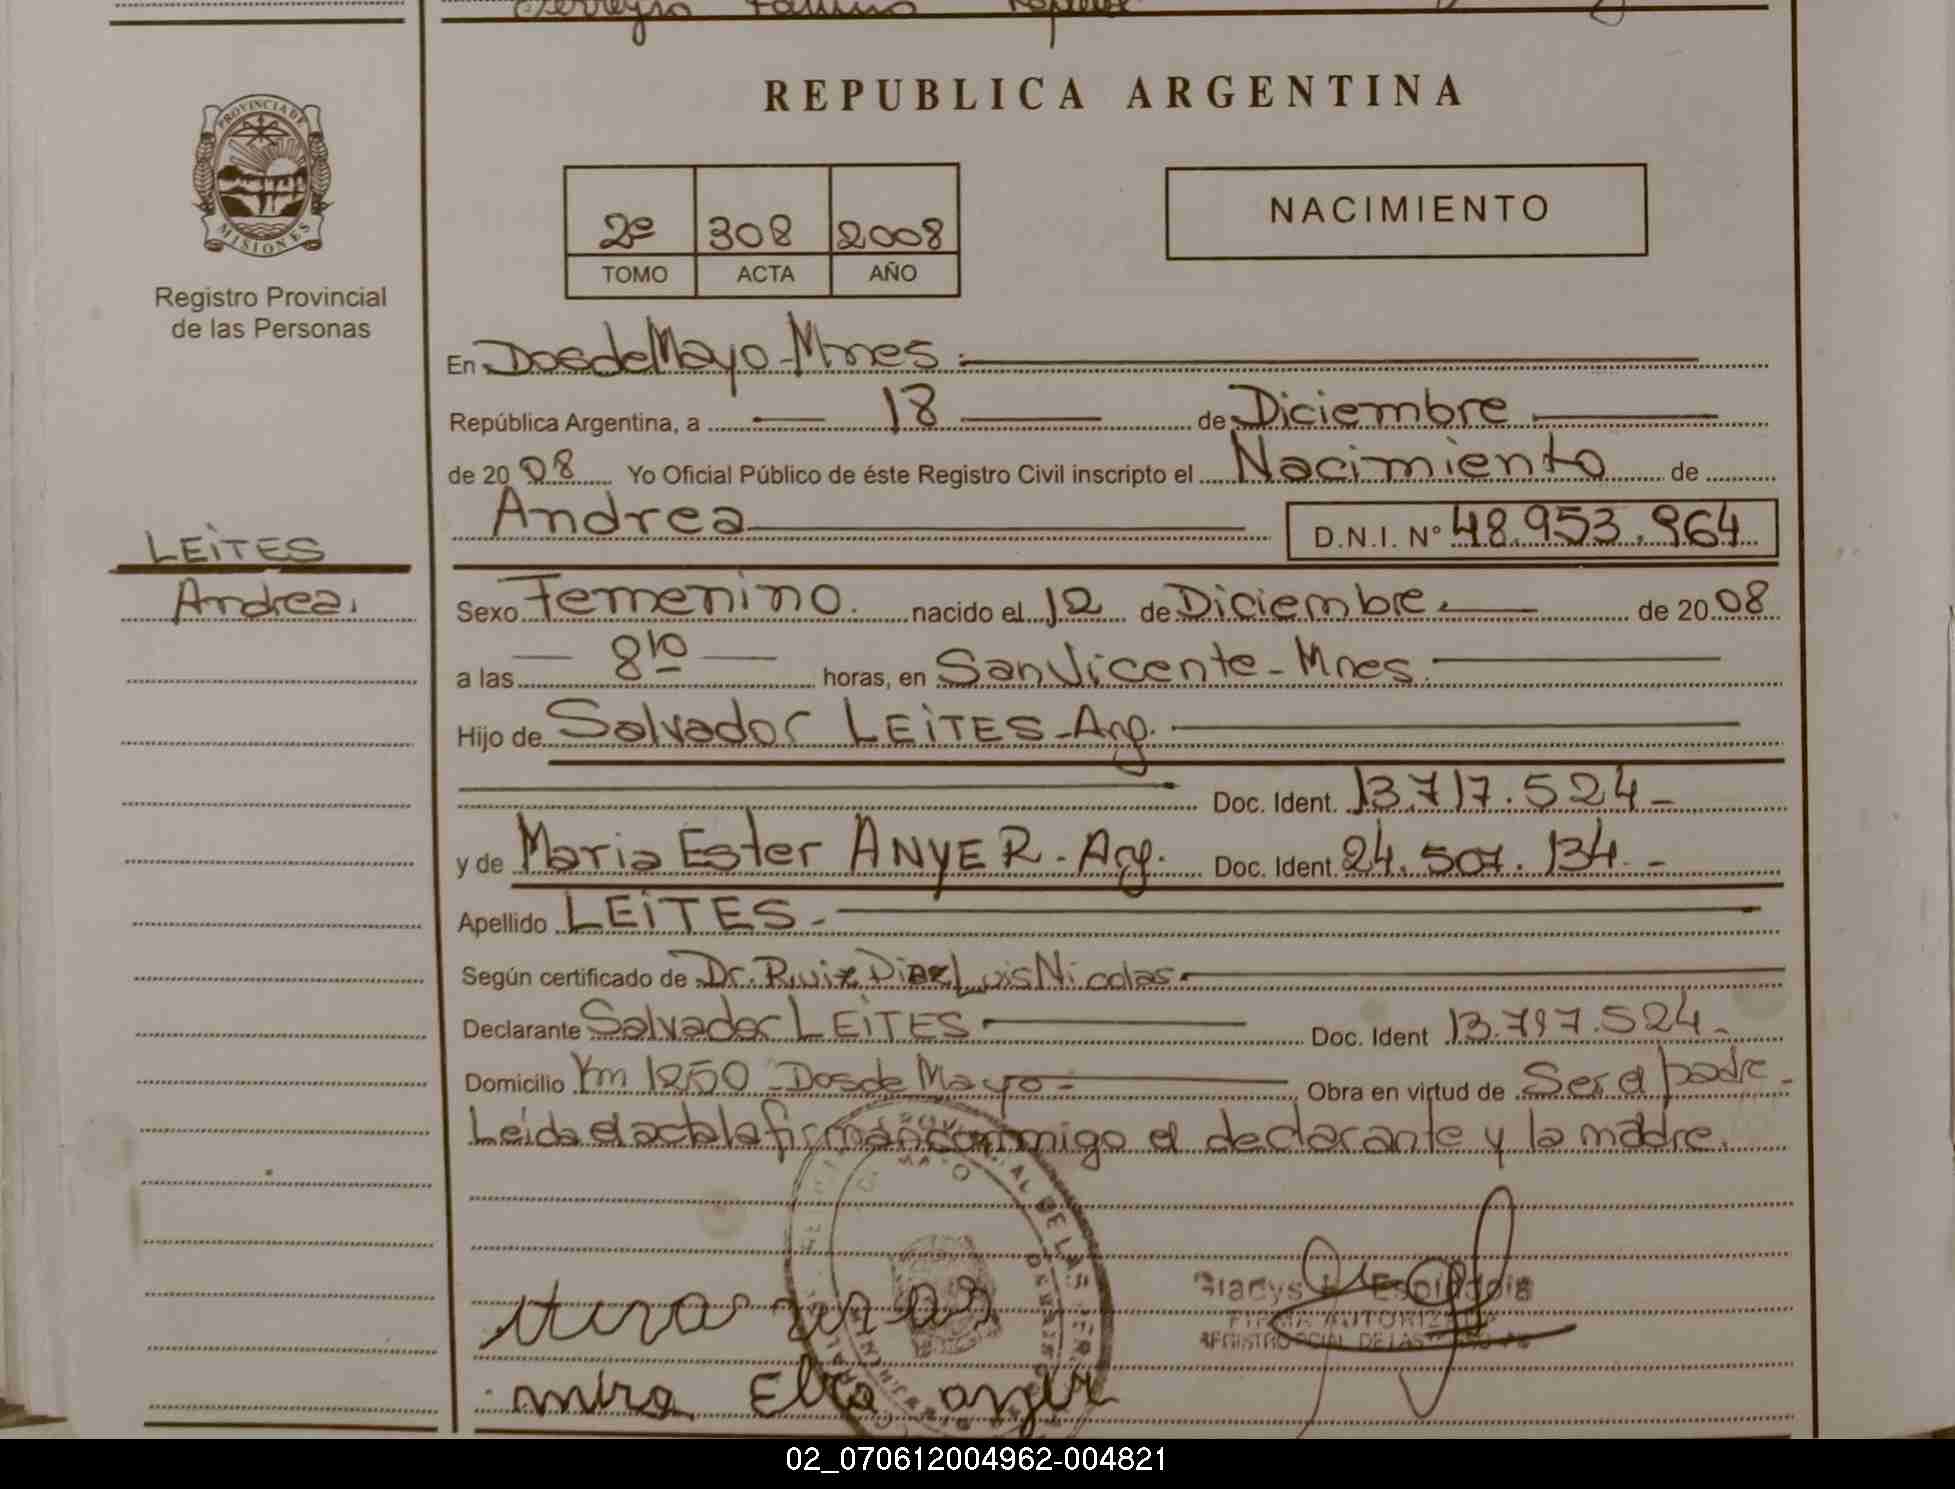 PROVINCIA DE
MISIONES
Registro Provincial
de las Personas
LEITES
Andrea.
REPUBLICA ARGENTINA
2º 308 2008
TOMO ACTA AÑO
NACIMIENTO
En Dos de Mayo - Mnes
República Argentina, a 18 de Diciembre
de 2008 Yo Oficial Público de éste Registro Civil inscripto el Nacimiento de
Andrea D.N.I. Nº 48.953.964
Sexo Femenino. nacido el 12 de Diciembre de 2008
a las 8 10 horas, en San Vicente - Mnes.
Hijo de Salvador LEITES - Arg.
Doc. Ident. 13.717.524 -
y de Maria Ester ANYER - Arg. Doc. Ident. 24.507.134. -
Apellido LEITES. -
Según certificado de Dr. Ruiz Diaz Luis Nicolas
Declarante Salvador LEITES Doc. Ident 13.797.524 -
Domicilio Km 1250 - Dos de Mayo - Obra en virtud de Ser el padre -
Leida el acta la firman conmigo el declarante y la madre.
Gladys Espindola
FIRMA AUTORIZADA
02_070612004962-004821